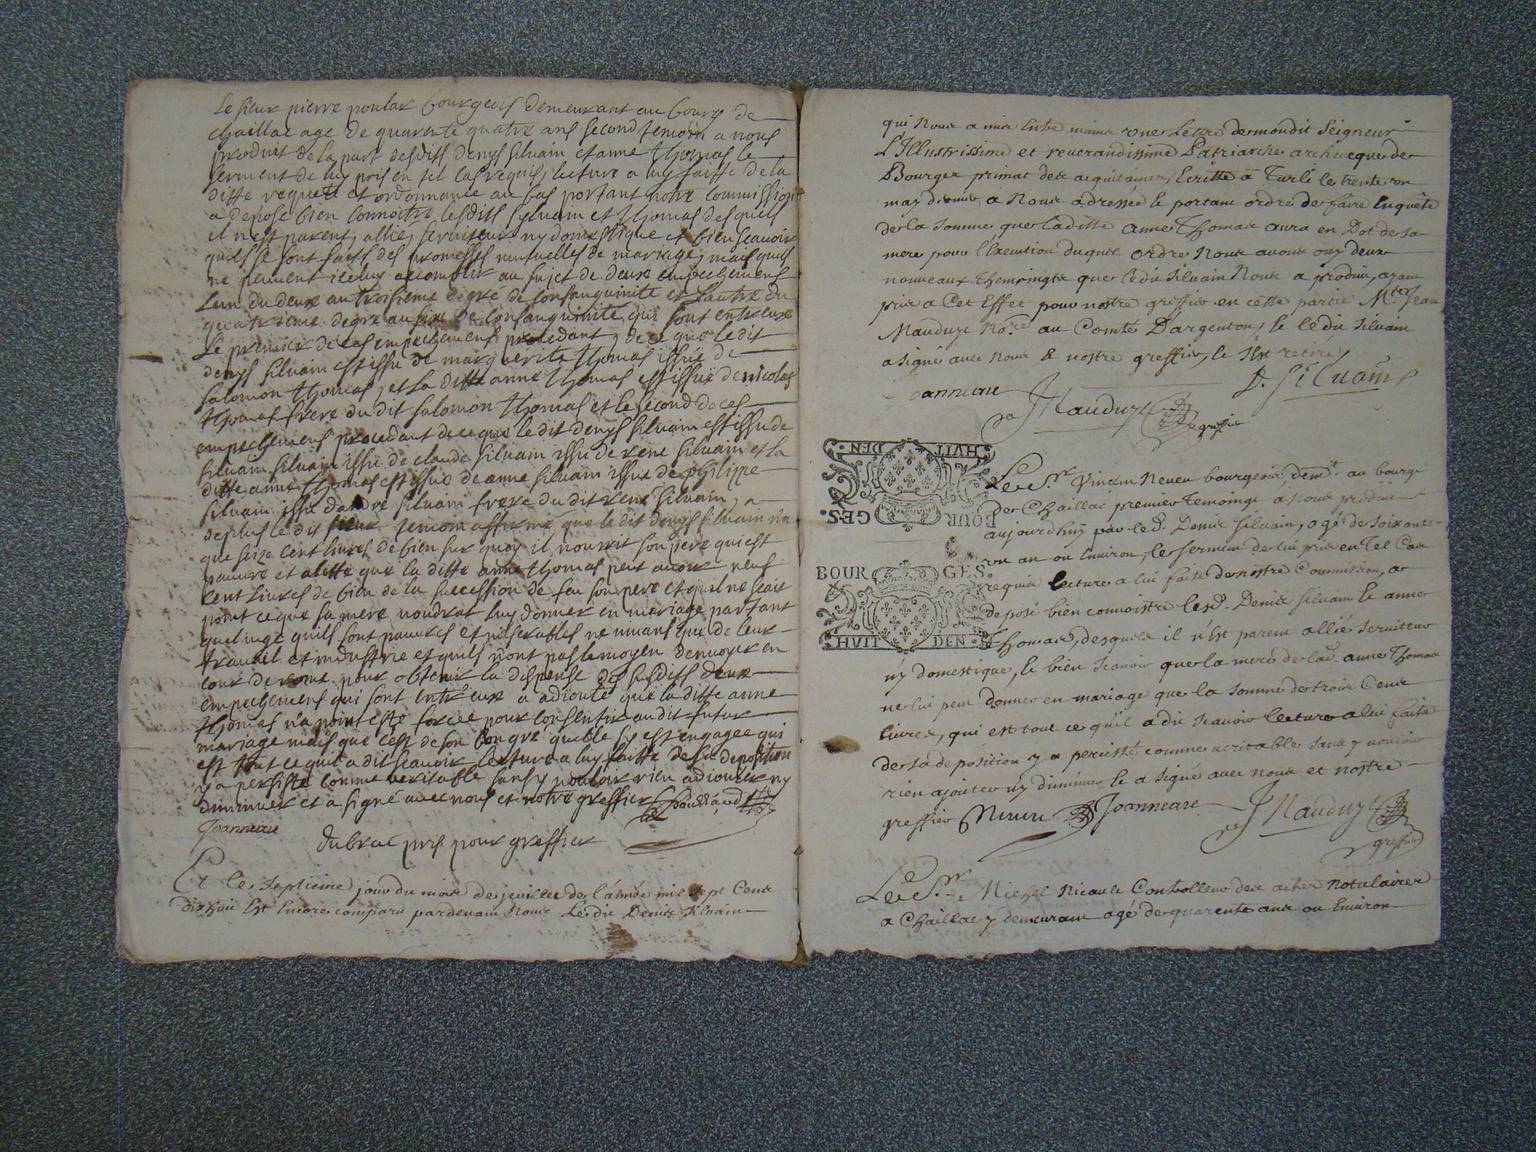 Le sieur pierre poulax bourgeois demeurant au bourg de
chaillac age de quarente quatre ans second temoin a nous
produit de la part desdits denys silvain et anne thomas le
serment de luy pris en tel cas requis, lecture a luy faitte de la
ditte requete et ordonnance au bas portant notre commission
a depose bien connoitre lesdits sylvain et thomas desquels
il n'est parent, allié, serviteur ny domestique et bien scavoir
quils se sont faits des promesses mutuelles de mariage, mais quils
ne peuvent icelluy accomplir au sujet de deux empechemens
lun du deux au troisieme degré de consanguinité et lautre du
quatrieme degre au de consanguinité qui sont entreux
Le premier de ces empechemens procedant de ce que le dit
denys silvain est issu de marguerite thomas issüe de
salomon thomas, et la ditte anne thomas est issüe de nicolas
thomas frere du dit salomon thomas et le second de ces
empechemens procedant de ce que le dit denys silvain est issu de
silvain silvain issu de claude silvain issu de rene silvain et la
ditte anne thomas est issüe de anne silvain issüe de philippe
silvain issu dandré silvain frere du dit rené silvain, a
de plus le dit sieur temoin affirmé que le dit denys silvain n'a
que seize cent livres de bien sur quoy il nourrit son pere qui est
pauvre et alitté que la ditte anne thomas peut avoir neuf
cent livres de bien de la succession de feu son pere et quil ne scait
point ce que sa mere voudrat luy donner en mariage partant
quil juge quils sont pauvres et miserables ne vivans que de leur
travail et industrie et quils n'ont pas le moyen denvoyer en
cour de rome pour obtenir la dispense des susdits deux
empechemens qui sont entr'eux a adjouté que la ditte anne
thomas n'a point esté forcée pour consentir audit futur
mariage mais que c'est de son bon gré quelle sy est engagee qui
est tout ce quil a dit scavoir lecture a luy faitte de sa deposition
y a persisté comme veritable sans y vouloir rien adjouter ny
diminuer et a signé avec nous et notre greffier
Joanneau
dubrac pris pour greffier
Et le septieme jour du mois de jeuillet de l'année mil sept cents
dixhuit Est Encore comparu pardevant Nous Le dit Denis Silvain
qui Nous a mis Entre mains une Lettre de mondit Seigneur
L'Illustrissime et reverandissime Patriarche archeveque de
Bourges primat des aquitaines, Ecritte à Turli le trente un
may dernier, a Nous adressée le portant ordre de faire Enquête
de la somme que laditte Anne Thomas aura en Dot de sa
mere pour l'Execution duquel ordre Nous avons ouy deux
nouveaux themoingts que ledit Silvain Nous a produit, ayant
pris a Cet Effet pour nostre greffier en cette partie Mtre Jean
Mauduyt No.re au Comté D'argenton, le ledit Silvain
a signé avec Nous & nostre greffier, le s'est retiré
Joanneau D. Silvain
J Mauduyt
greffier
HUIT DEN.
BOURGES.
Le Sr. Vincent Neveu bourgeois, demt. au bourg
de Chaillac premier temoingt a Nous produit
aujourdhuy par led. Denis Silvain, agé de soixante
BOURGES
un an ou Environ, le serment de lui pris en Tel Cas
requis lecture a lui faite de nostre Commission, a
deposé bien connoistre lesd. Denis Silvain & anne
HUIT DEN.
Thomas, desquels il n'Est parent allié serviteur
ny domestique, & bien scavoir que la mere de lad. anne Thomas
ne lui peut donner en mariage que la somme de trois Cents
livres, qui est tout ce qu'il a dit scavoir lecture a lui faite
de sa deposition y a percisté comme veritable sans y vouloir
rien ajouter ny diminuer le a signé avec nous et nostre
greffier Neveu Joanneau J Mauduyt
greffier
Le Sr. Michel Nicault Controlleur des actes notulaires
a Chaillac y demeurant agé de quarente ans ou Environ